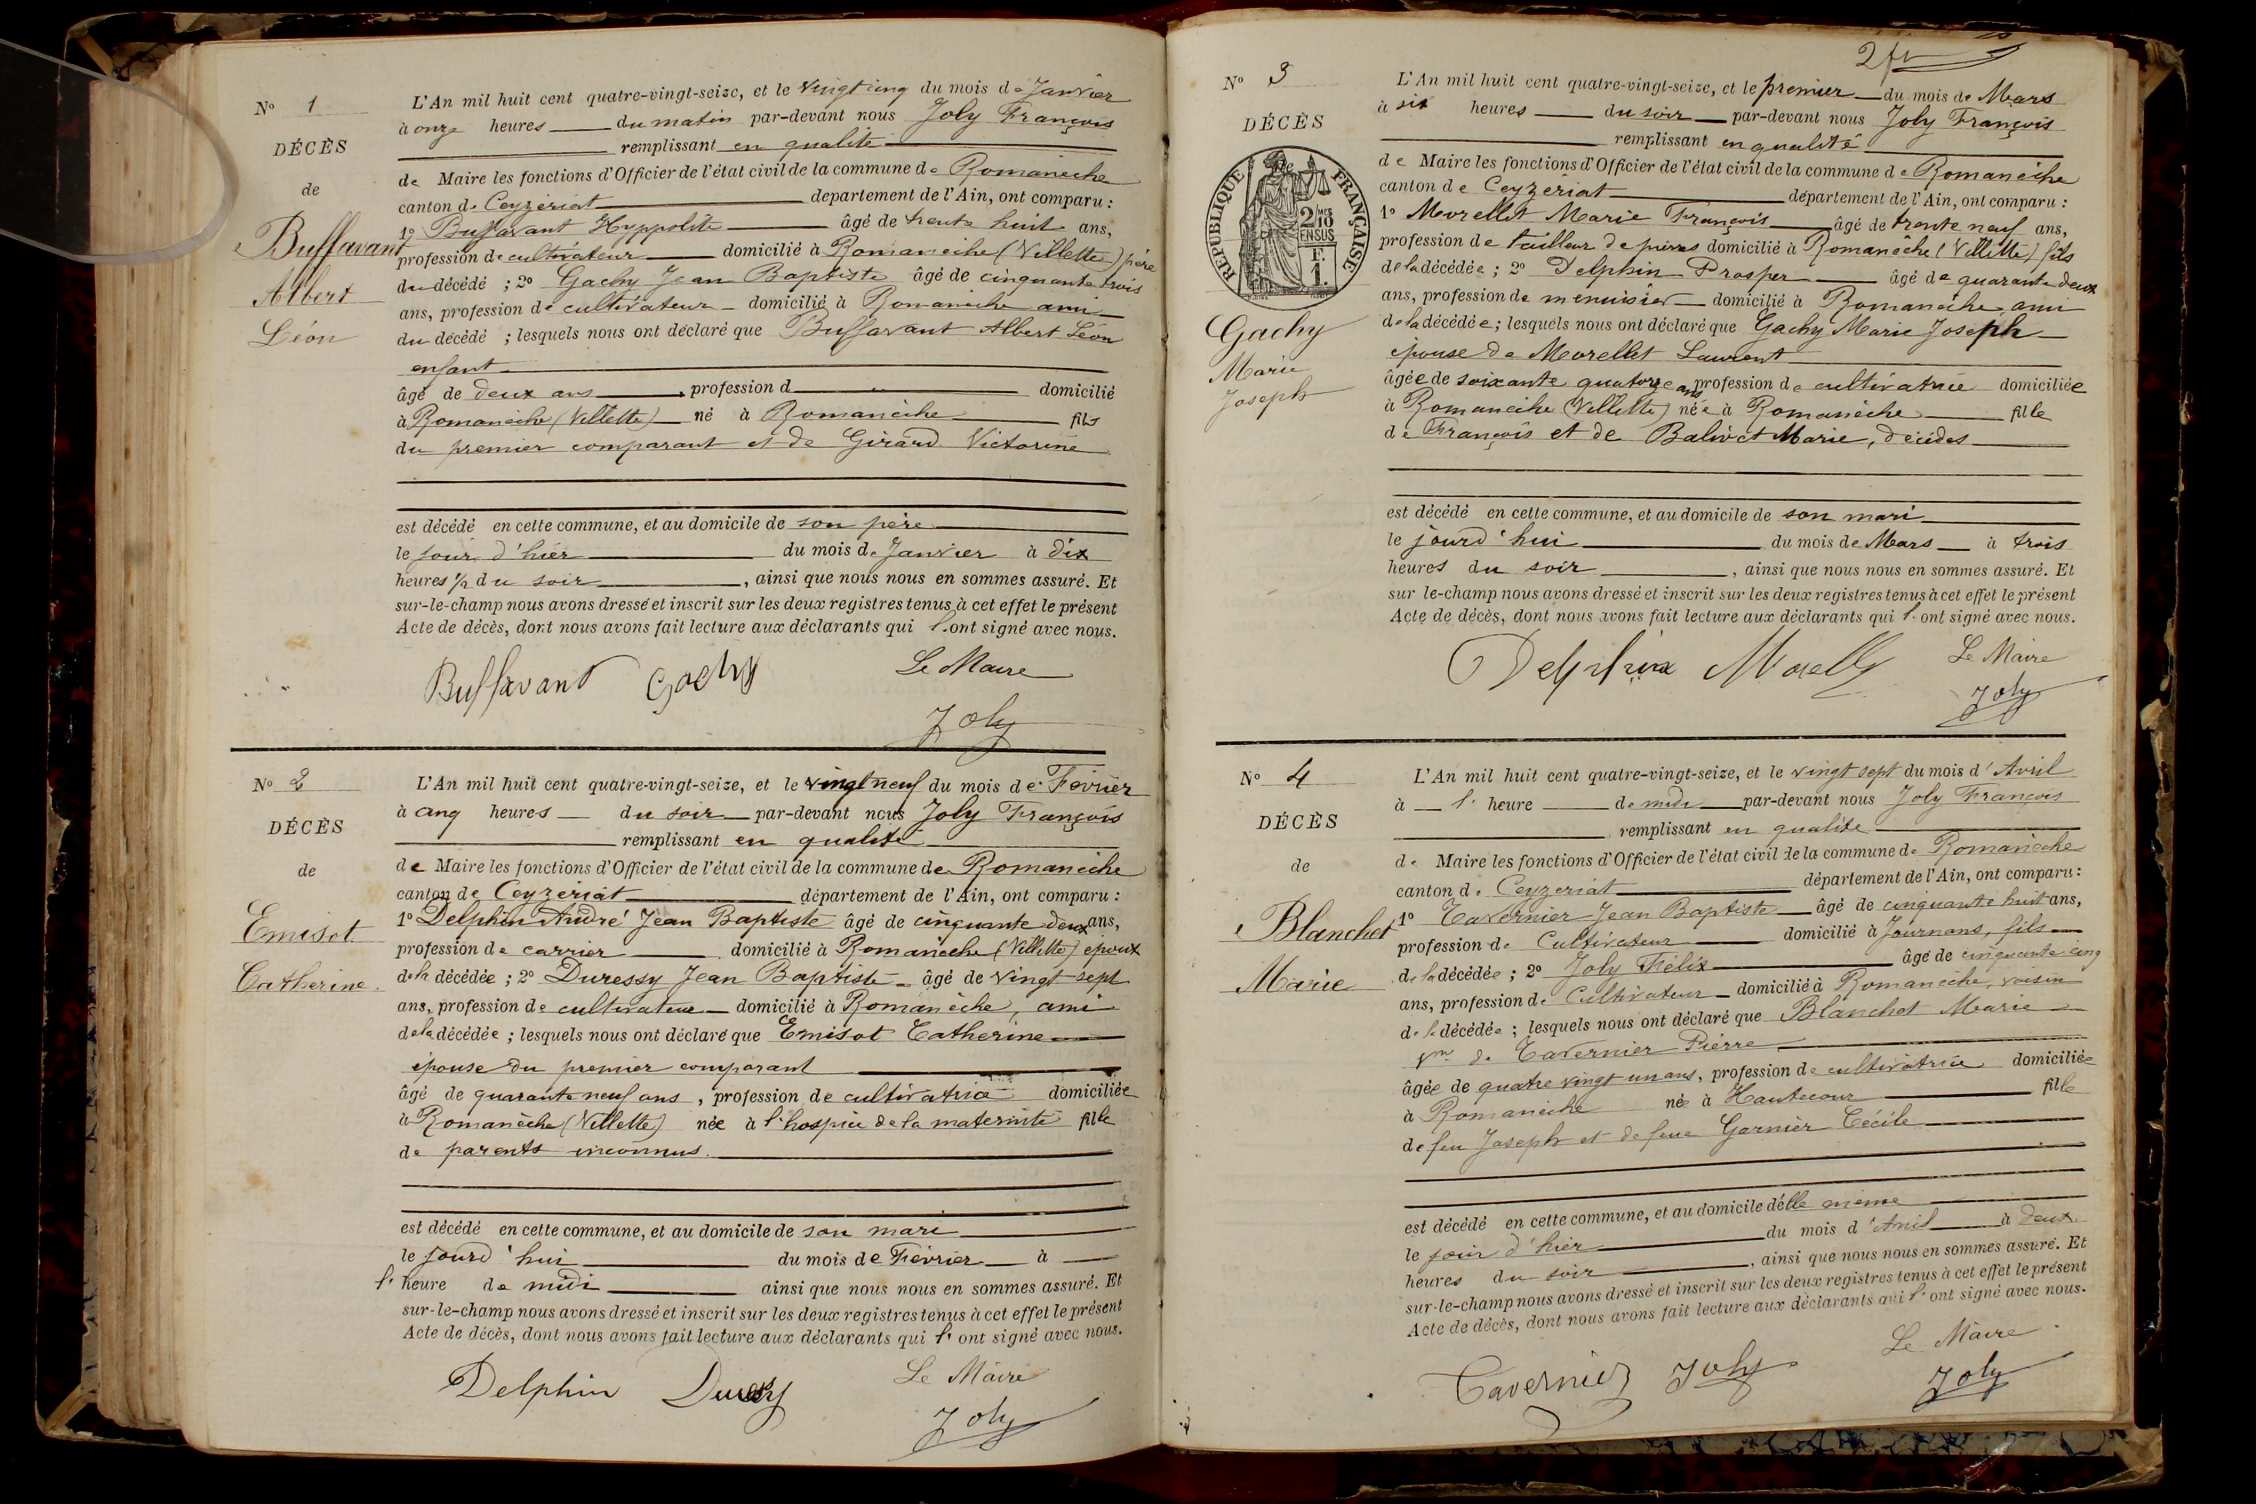 N° 1
DÉCÈS
de
Buffavant
Albert
Léon
L'An mil huit cent quatre-vingt-seize, et le vingt cinq du mois de Janvier
à onze heures du matin par-devant nous Joly François
remplissant en qualité
de Maire les fonctions d'Officier de l'état civil de la commune de Romanèche
canton de Ceyzériat département de l'Ain, ont comparu :
1° Buffavant Hyppolite âgé de trente huit ans,
profession de cultivateur domicilié à Romanèche (Villette) père
du décédé ; 2° Gachy Jean Baptiste âgé de cinquante trois
ans, profession de cultivateur domicilié à Romanèche ami
du décédé ; lesquels nous ont déclaré que Buffavant Albert Léon
enfant
âgé de deux ans, profession d domicilié
à Romanèche (Villette) né à Romanèche fils
du premier comparant et de Girard Victorine
est décédé en cette commune, et au domicile de son père
le jour d'hier du mois de Janvier à dix
heures ½ du soir, ainsi que nous nous en sommes assuré. Et
sur-le-champ nous avons dressé et inscrit sur les deux registres tenus à cet effet le présent
Acte de décès, dont nous avons fait lecture aux déclarants qui l'ont signé avec nous.
Buffavant Gachy Le Maire
Joly
N° 2
DÉCÈS
de
Emisot
Catherine
L'An mil huit cent quatre-vingt-seize, et le vingt neuf du mois de Février
à cinq heures du soir par-devant nous Joly François
remplissant en qualité
de Maire les fonctions d'Officier de l'état civil de la commune de Romanèche
canton de Ceyzériat département de l'Ain, ont comparu :
1° Delphin André Jean Baptiste âgé de cinquante deux ans,
profession de carrier domicilié à Romanèche (Villette) époux
de la décédée ; 2° Duressy Jean Baptiste âgé de vingt sept
ans, profession de cultivateur domicilié à Romanèche, ami
de la décédée ; lesquels nous ont déclaré que Emisot Catherine
épouse du premier comparant
âgé de quarante neuf ans, profession de cultivatrice domiciliée
à Romanèche (Villette) née à l'hospice de la maternité fille
de parents inconnus.
est décédé en cette commune, et au domicile de son mari
le jourd'hui du mois de Février à
l'heure de midi ainsi que nous nous en sommes assuré. Et
sur-le-champ nous avons dressé et inscrit sur les deux registres tenus à cet effet le présent
Acte de décès, dont nous avons fait lecture aux déclarants qui l'ont signé avec nous.
Delphin Le Maire
Joly
2 fr
N° 3
DÉCÈS
de
RÉPUBLIQUE FRANÇAISE
2/10 EN SUS
F. 1.
Gachy
Marie
Joseph
L'An mil huit cent quatre-vingt-seize, et le premier du mois de Mars
à six heures du soir par-devant nous Joly François
remplissant en qualité
de Maire les fonctions d'Officier de l'état civil de la commune de Romanèche
canton de Ceyzériat département de l'Ain, ont comparu :
1° Morellet Marie François âgé de trente neuf ans,
profession de tailleur de pierres domicilié à Romanèche (Villette) fils
de la décédée ; 2° Delphin Prosper âgé de quarante deux
ans, profession de menuisier domicilié à Romanèche ami
de la décédée ; lesquels nous ont déclaré que Gachy Marie Joseph
épouse de Morellet Laurent
âgée de soixante quatorze ans profession de cultivatrice domiciliée
à Romanèche (Villette) née à Romanèche fille
de François et de Balivet Marie, décédés
est décédé en cette commune, et au domicile de son mari
le jourd'hui du mois de Mars à trois
heures du soir, ainsi que nous nous en sommes assuré. Et
sur le-champ nous avons dressé et inscrit sur les deux registres tenus à cet effet le présent
Acte de décès, dont nous avons fait lecture aux déclarants qui l'ont signé avec nous.
Delphin Le Maire
Joly
N° 4
DÉCÈS
de
Blanchet
Marie
L'An mil huit cent quatre-vingt-seize, et le vingt sept du mois d'Avril
à l'heure de midi par-devant nous Joly François
remplissant en qualité
de Maire les fonctions d'Officier de l'état civil de la commune de Romanèche
canton de Ceyzériat département de l'Ain, ont comparu :
1° Tavernier Jean Baptiste âgé de cinquante huit ans,
profession de Cultivateur domicilié à Journans, fils
de la décédée ; 2° Joly Félix âgé de cinquante cinq
ans, profession de Cultivateur domicilié à Romanèche, voisin
de la décédée ; lesquels nous ont déclaré que Blanchet Marie
vve de Tavernier Pierre
âgée de quatre vingt un ans, profession de cultivatrice domiciliée
à Romanèche née à Hautecour fille
de feu Joseph et de feue Garnier Cécile
est décédé en cette commune, et au domicile d'elle même
le jour d'hier du mois d'Avril à deux
heures du soir, ainsi que nous nous en sommes assuré. Et
sur-le-champ nous avons dressé et inscrit sur les deux registres tenus à cet effet le présent
Acte de décès, dont nous avons fait lecture aux déclarants qui l'ont signé avec nous.
Tavernier Joly Le Maire
Joly